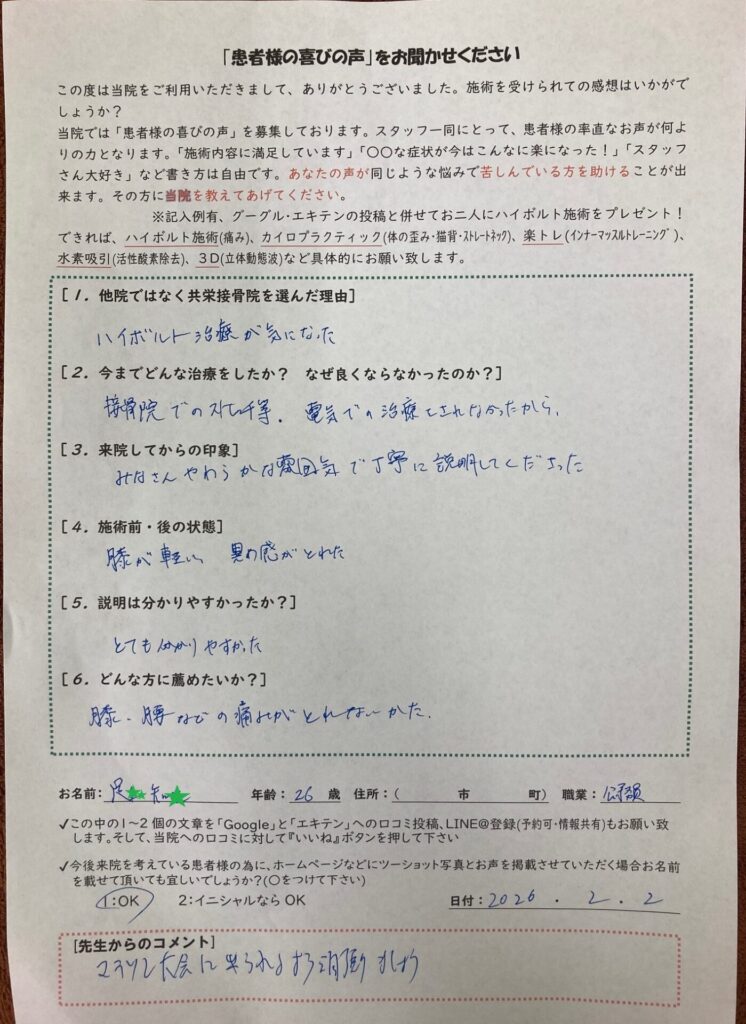 「患者様の喜びの声」をお聞かせください
この度は当院をご利用いただきまして、ありがとうございました。施術を受けられての感想はいかがで
しょうか?
当院では「患者様の喜びの声」を募集しております。スタッフ一同にとって、患者様の率直なお声が何よ
りの力となります。「施術内容に満足しています」「〇〇な症状が今はこんなに楽になった!」「スタッフ
さん大好き」など書き方は自由です。あなたの声が同じような悩みで苦しんでいる方を助けることが出
来ます。その方に当院を教えてあげてください。
※記入例有、グーグル・エキテンの投稿と併せてお二人にハイボルト施術をプレゼント!
できれば、ハイボルト施術(痛み)、カイロプラクティック(体の歪み・猫背・ストレートネック)、楽トレ(インナーマッスルトレーニング)、
水素吸引(活性酸素除去)、3D(立体動態波)など具体的にお願い致します。
[1. 他院ではなく共栄接骨院を選んだ理由]
ハイボルト治療が気になった
[2. 今までどんな治療をしたか? なぜ良くならなかったのか?]
接骨院での 等. 電気での治療をされなかったから.
[3. 来院してからの印象]
みなさんやわらかな雰囲気で丁寧に説明してくださった
[4. 施術前・後の状態]
膝が軽い 感がとれた
[5. 説明は分かりやすかったか?]
とても分かりやすかった
[6. どんな方に薦めたいか?]
膝、腰などの痛みがとれないかた.
お名前: 年齢: 26 歳 住所:( 市 町) 職業: 公務員
✓この中の1~2個の文章を「Google」と「エキテン」への口コミ投稿、LINE@登録(予約可・情報共有)もお願い致
します。そして、当院への口コミに対して『いいね』ボタンを押して下さい
✓今後来院を考えている患者様の為に、ホームページなどにツーショット写真とお声を掲載させていただく場合お名前
を載せて頂いても宜しいでしょうか?(〇をつけて下さい)
1:OK 2:イニシャルなら OK 日付: 2026 . 2 . 2
[先生からのコメント]
マラソン大会に出られるよう頑張りましょう